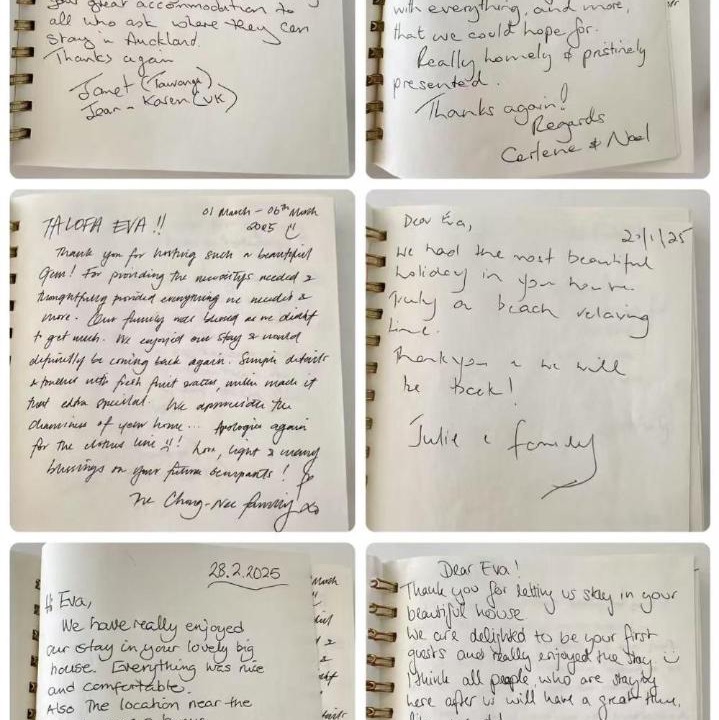 great accommodation to
all who ask where they can
stay in Auckland.
Thanks again
Janet (Tauranga)
Jean-Karen (UK)
with everything, and more,
that we could hope for.
Really homely & pristinely
presented.
Thanks again!
Regards
Carlene & Noel
01 March - 06th March
2025
TALOFA EVA !!
Thank you for hosting such a beautiful
Gem! For providing the needed &
thoughtfully provided everything we needed &
more. Our family was blessed as we didn't
to get much. We enjoyed our stay & would
definitely be coming back again. Simple details
& with fresh fruit water, made it
that extra special. We appreciate the
cleanliness of your home... Apologies again
for the clothes line !!! Love, light & many
blessings on your future occupants!
The Chong-Nee family xo
Dear Eva,
20/1/25
We had the most beautiful
holiday in your house.
Truly a beach relaxing
time.
Thank you & we will
be back!
Julie & family
28.2.2025
Hi Eva,
We have really enjoyed
our stay in your lovely big
house. Everything was nice
and comfortable.
Also The location near the
March
Dear Eva!
Thank you for letting us stay in your
beautiful house
We are delighted to be your first
guests and really enjoyed the stay.
I think all people, who are staying
here after us will have a great time,